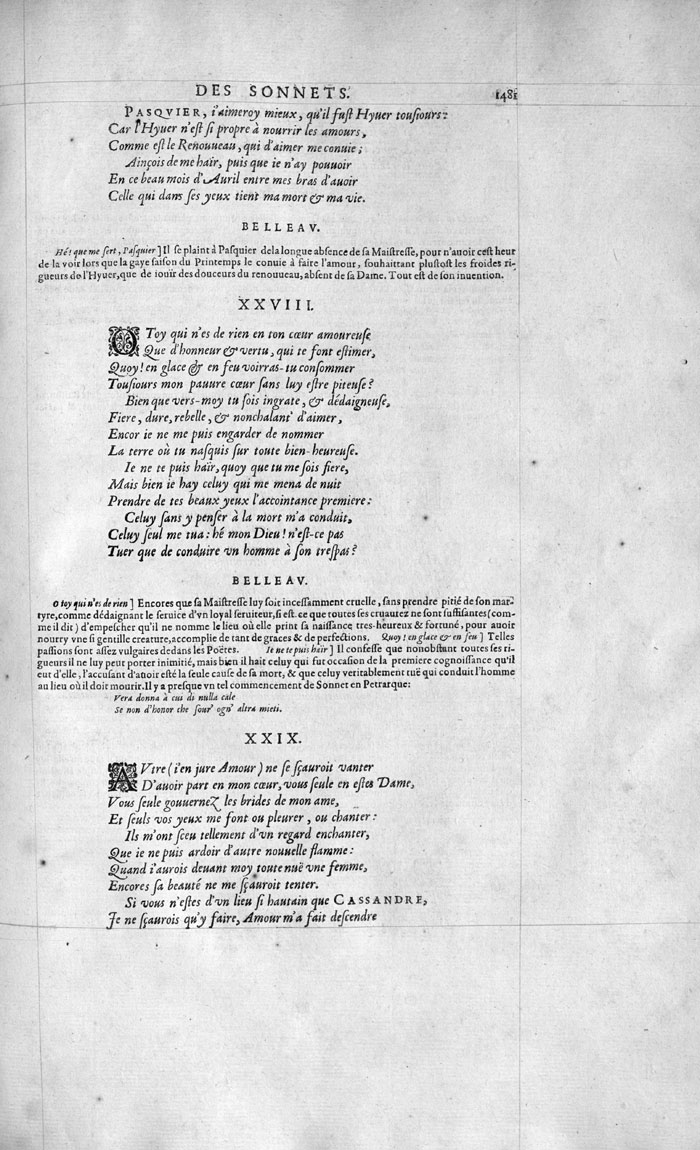 DES SONNETS. 1481
PASQVIER, i'aimeroy mieux, qu'il fust Hyuer tousiours:
Car l'Hyuer n'est si propre à nourrir les amours,
Comme est le Renouueau, qui d'aimer me conuie;
Ainçois de me haïr, puis que ie n'ay pouuoir
En ce beau mois d'Auril entre mes bras d'auoir
Celle qui dans ses yeux tient ma mort & ma vie.
BELLEAV.
Hé! que me sert, Pasquier] Il se plaint à Pasquier de la longue absence de sa Maistresse, pour n'auoir cest heur
de la voir lors que la gaye saison du Printemps le conuie à faire l'amour, souhaittant plustost les froides ri-
gueurs de l'Hyuer, que de iouïr des douceurs du renouueau, absent de sa Dame. Tout est de son inuention.
XXVIII.
O Toy qui n'es de rien en ton cœur amoureuse
Que d'honneur & vertu, qui te font estimer,
Quoy! en glace & en feu voirras-tu consommer
Tousiours mon pauure cœur sans luy estre piteuse?
Bien que vers-moy tu sois ingrate, & dédaigneuse,
Fiere, dure, rebelle, & nonchalant' d'aimer,
Encor ie ne me puis engarder de nommer
La terre où tu nasquis sur toute bien-heureuse.
Ie ne te puis haïr, quoy que tu me sois fiere,
Mais bien ie hay celuy qui me mena de nuit
Prendre de tes beaux yeux l'accointance premiere:
Celuy sans y penser à la mort m'a conduit,
Celuy seul me tua: hé mon Dieu! n'est-ce pas
Tuer que de conduire vn homme à son trespas?
BELLEAV.
O toy qui n'es de rien] Encores que sa Maistresse luy soit incessamment cruelle, sans prendre pitié de son mar-
tyre, comme dédaignant le seruice d'vn loyal seruiteur, si est-ce que toutes ses cruautez ne sont suffisantes (com-
me il dit) d'empescher qu'il ne nomme le lieu où elle print sa naissance tres-heureux & fortuné, pour auoir
nourry vne si gentille creature, accomplie de tant de graces & de perfections. Quoy! en glace & en feu] Telles
passions sont assez vulgaires dedans les Poëtes. Ie ne te puis haïr] Il confesse que nonobstant toutes ses ri-
gueurs il ne luy peut porter inimitié, mais bien il hait celuy qui fut occasion de la premiere cognoissance qu'il
eut d'elle, l'accusant d'auoir esté la seule cause de sa mort, & que celuy veritablement tuë qui conduit l'homme
au lieu où il doit mourir. Il y a presque vn tel commencement de Sonnet en Petrarque:
Vera donna à cui di nulla cale
Se non d'honor che sour' ogn' altra mieti.
XXIX.
AVtre (i'en jure Amour) ne se sçauroit vanter
D'auoir part en mon cœur, vous seule en estes Dame,
Vous seule gouuernez les brides de mon ame,
Et seuls vos yeux me font ou pleurer, ou chanter:
Ils m'ont sceu tellement d'vn regard enchanter,
Que ie ne puis ardoir d'autre nouuelle flamme:
Quand i'aurois deuant moy toute nuë vne femme,
Encores sa beauté ne me sçauroit tenter.
Si vous n'estes d'vn lieu si hautain que CASSANDRE,
Je ne sçaurois qu'y faire, Amour m'a fait descendre